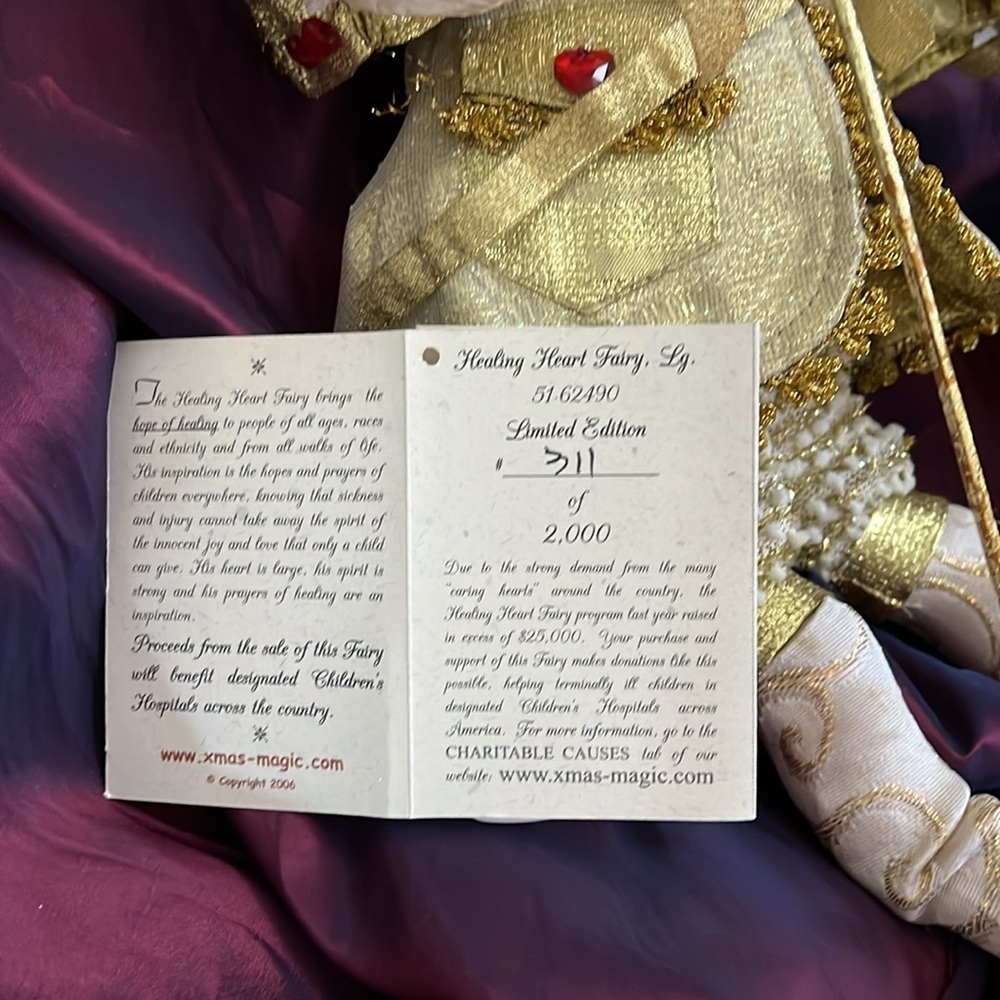 The Healing Heart Fairy brings the
hope of healing to people of all ages, races
and ethnicity and from all walks of life.
His inspiration is the hopes and prayers of
children everywhere, knowing that sickness
and injury cannot take away the spirit of
the innocent joy and love that only a child
can give. His heart is large, his spirit is
strong and his prayers of healing are an
inspiration.
Proceeds from the sale of this Fairy
will benefit designated Children's
Hospitals across the country.
www.xmas-magic.com
© Copyright 2006
Healing Heart Fairy, Lg.
51-62490
Limited Edition
# 311
of
2,000
Due to the strong demand from the many
"caring hearts" around the country, the
Healing Heart Fairy program last year raised
in excess of $25,000. Your purchase and
support of this Fairy makes donations like this
possible, helping terminally ill children in
designated Children's Hospitals across
America. For more information, go to the
CHARITABLE CAUSES tab of our
website: www.xmas-magic.com